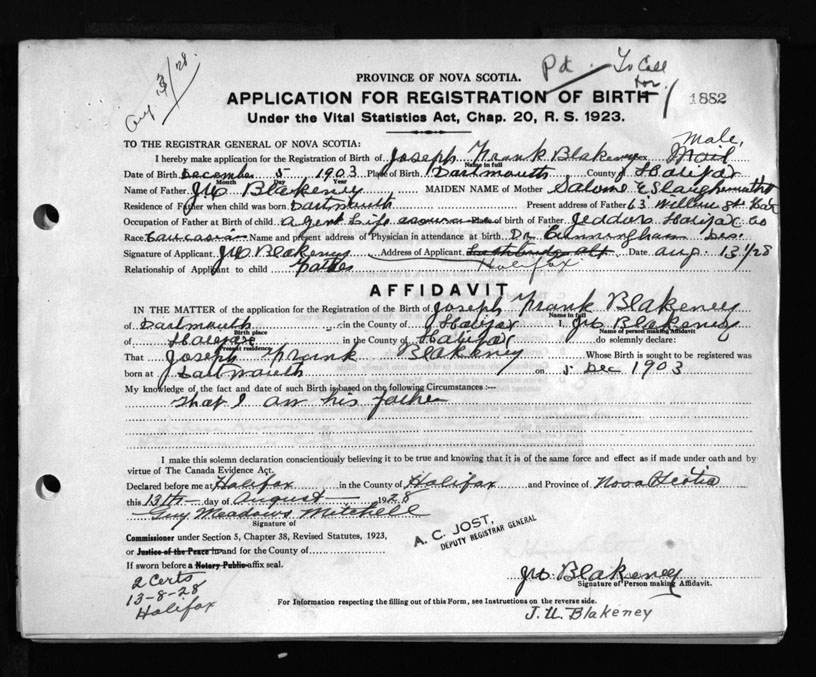 Aug 13/28.
Pd. To Call for
PROVINCE OF NOVA SCOTIA.
APPLICATION FOR REGISTRATION OF BIRTH
1882
Under the Vital Statistics Act, Chap. 20, R. S. 1923.
TO THE REGISTRAR GENERAL OF NOVA SCOTIA:
Male,
I hereby make application for the Registration of Birth of Joseph Frank Blakeney Sex Mail
Name in full
Date of Birth December 5 1903 Place of Birth Dartmouth County of Halifax
Month Day Year
Name of Father J U Blakeney MAIDEN NAME of Mother Salome E
Residence of Father when child was born Dartmouth Present address of Father 63 St
Occupation of Father at Birth of child Agent Life assurance of birth of Father Jeddore Halifax Co
Race Caucasian Name and present address of Physician in attendance at birth Dr Cunningham Dec.
Signature of Applicant J U Blakeney Address of Applicant Date Aug. 13/28
Relationship of Applicant to child Father Halifax
AFFIDAVIT
IN THE MATTER of the application for the Registration of the Birth of Joseph Frank Blakeney
Name in full
of Dartmouth in the County of Halifax I, J U Blakeney
Birth place Name of person making Affidavit
of Halifax in the County of Halifax do solemnly declare:
Present residency
That Joseph Frank Blakeney Whose Birth is sought to be registered was
born at Dartmouth on 5 Dec 1903
My knowledge of the fact and date of such Birth is based on the following Circumstances :—
That I am his father
I make this solemn declaration conscientiously believing it to be true and knowing that it is of the same force and effect as if made under oath and by
virtue of The Canada Evidence Act.
Declared before me at Halifax in the County of Halifax and Province of Nova Scotia
this 13th day of August 1928
Guy Meadows Mitchell
Signature of
Commissioner under Section 5, Chapter 38, Revised Statutes, 1923,
A. C. JOST,
DEPUTY REGISTRAR GENERAL
or Justice of the Peace in and for the County of
If sworn before a Notary Public affix seal.
J U Blakeney
Signature of Person making Affidavit.
2 Certs
13-8-28
Halifax
For Information respecting the filling out of this Form, see Instructions on the reverse side.
J. U. Blakeney